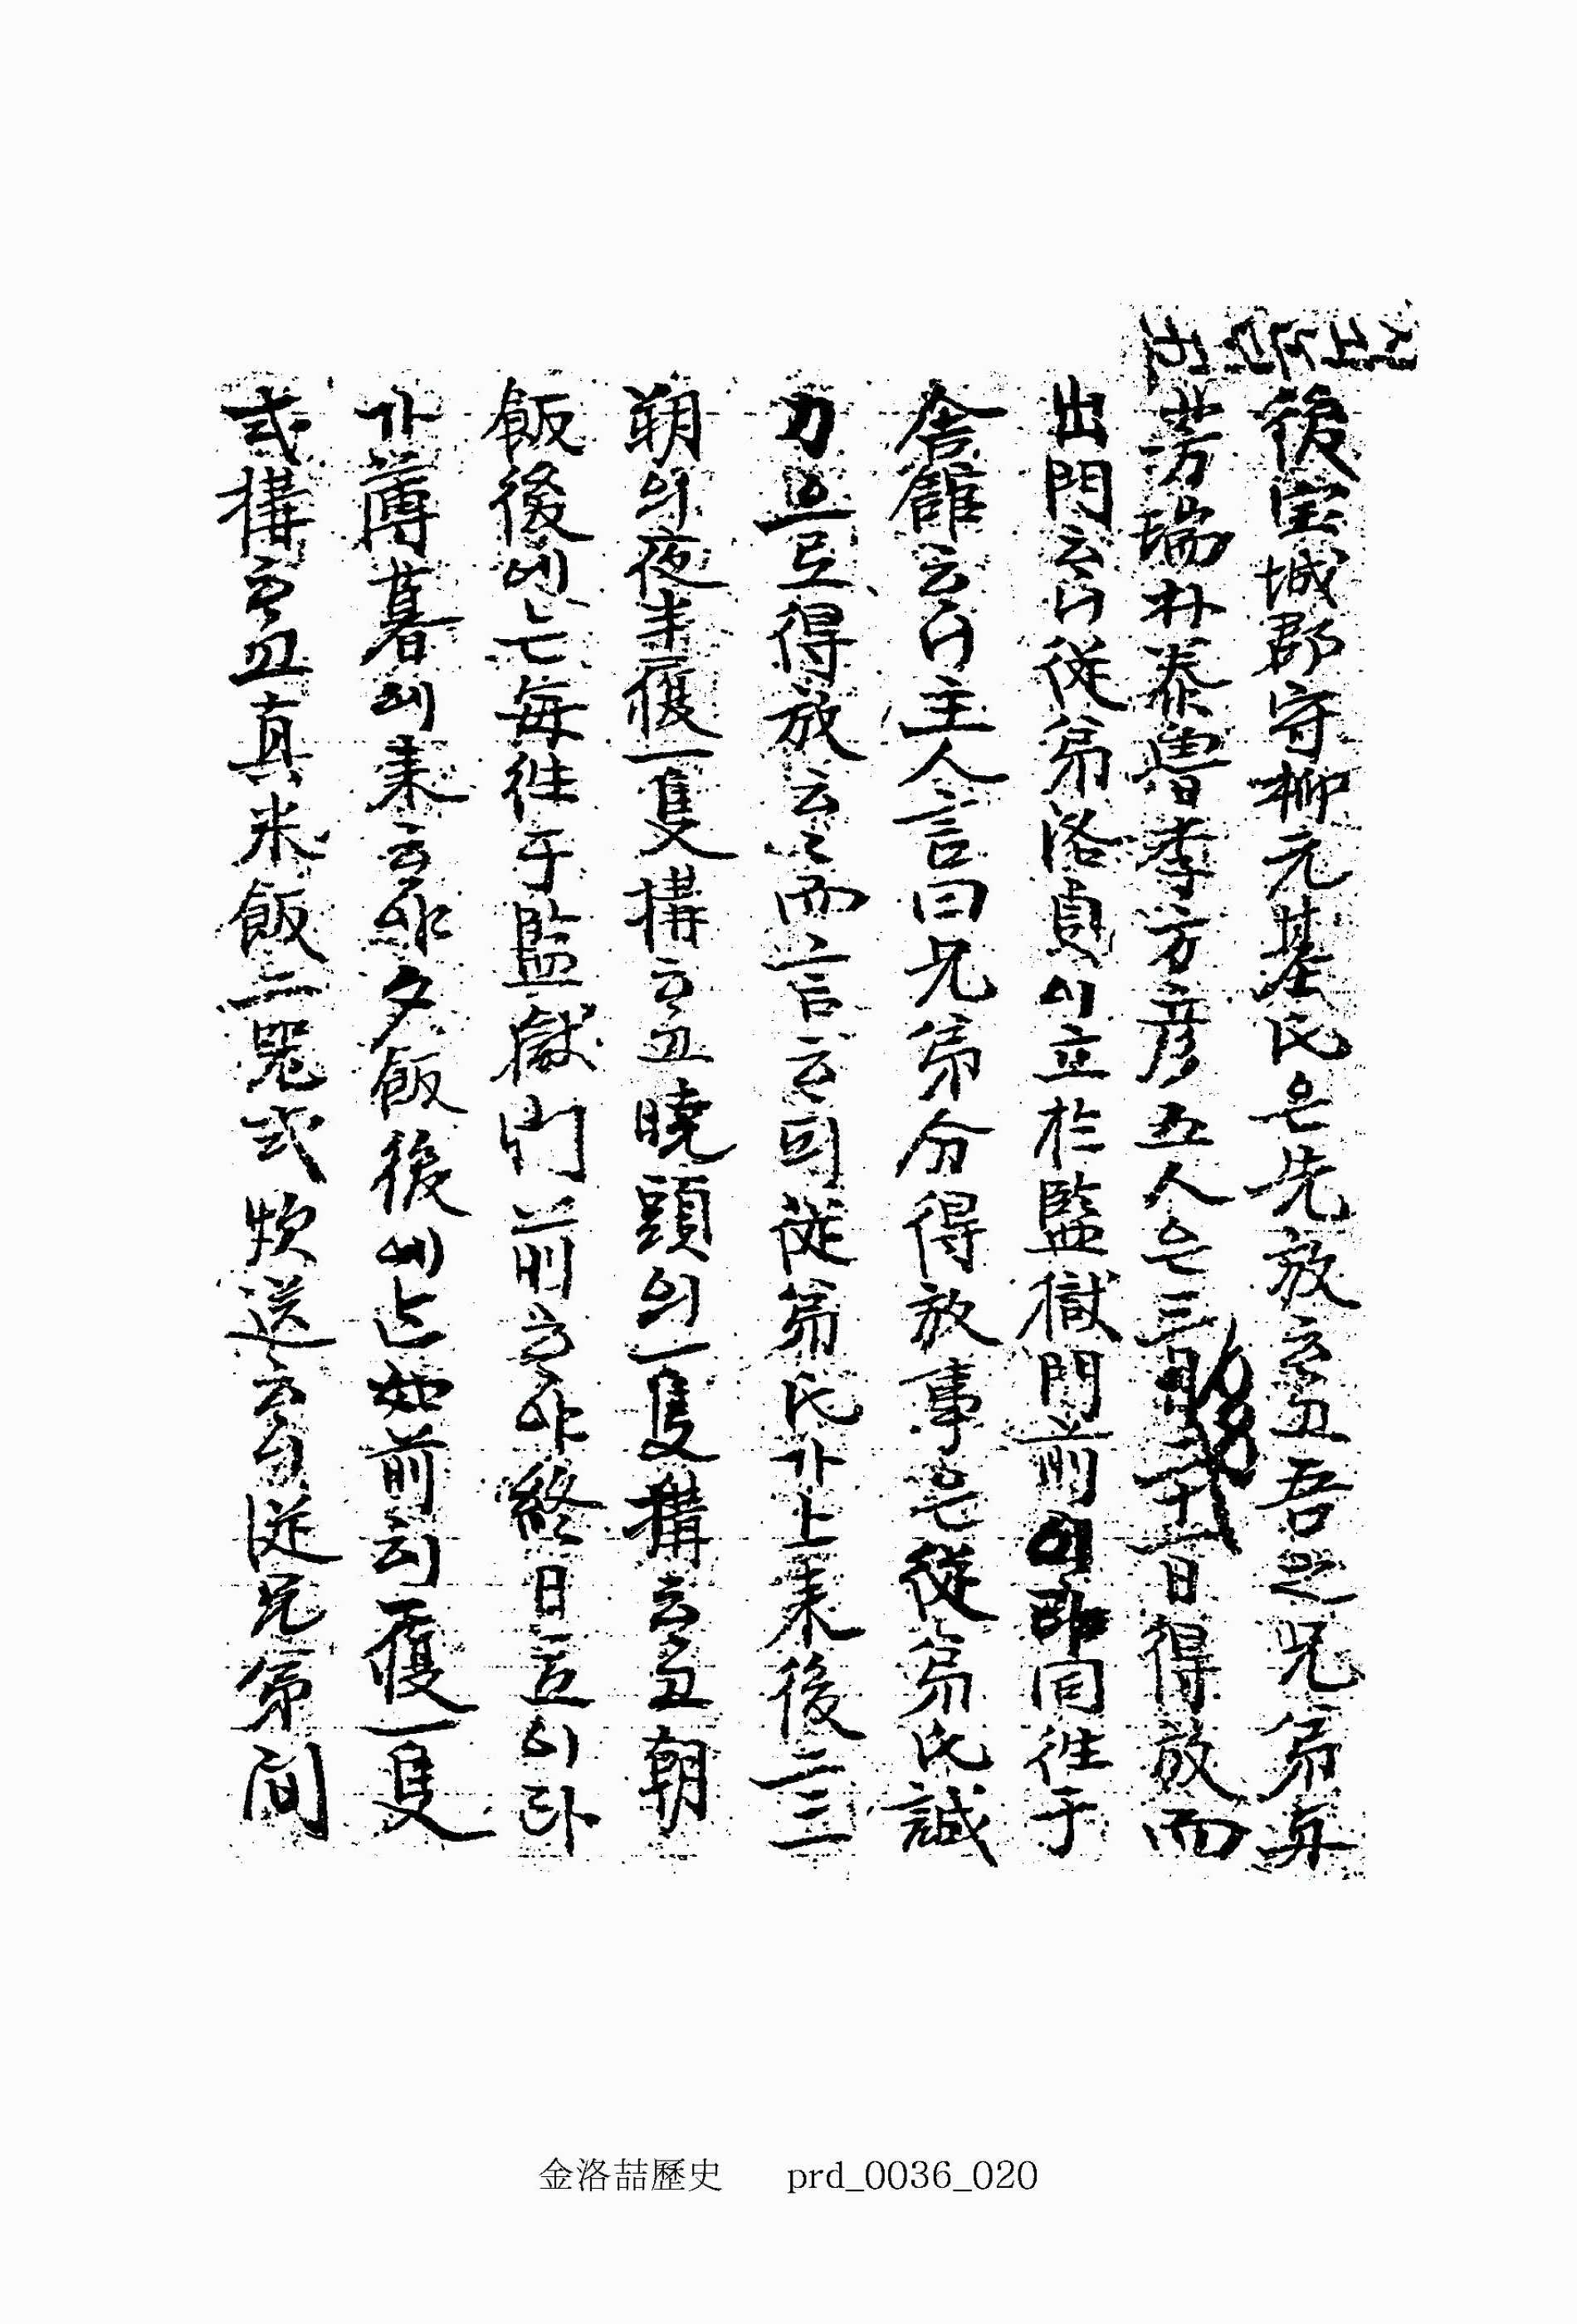 後宝城郡守柳元基氏은先放하고吾之兄弟与
芳瑞朴泰魯李方彦五人은三月二十一日得放而
出門하니從弟洛貞이立於監獄門前이即同往于
舍館하니主人言曰兄弟分得放事은從弟氏誠
力으로得放云云而言하되從弟氏가上來後二三
朔의夜半履一隻構하고曉頭의一隻構하고朝
飯後에亡每往于監獄門前하야終日立이라
가薄暮에來하야夕飯後에亡如前히履一隻
式構하고真米飯二器式炊送하니從兄弟間
金洛喆歷史 prd_0036_020